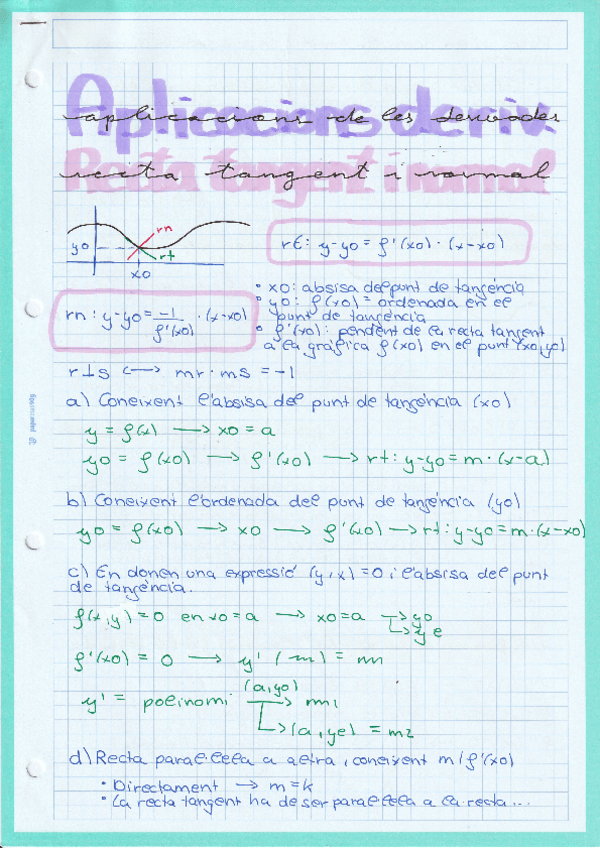 Aplicacions deriv.
aplicacions de les derivades
Recta tangent i normal
recta tangent i normal
rn
y0
rt
x0
rt: y-y0 = f'(x0) · (x-x0)
• x0: absisa del punt de tangència
• y0: f(x0) = ordenada en el
punt de tangència
• f'(x0): pendent de la recta tangent
a la gràfica f(x0) en el punt (x0,y0)
rn: y-y0 = -1/f'(x0) · (x-x0)
r⊥s ⟷ mr · ms = -1
a) Coneixent l'absisa del punt de tangència (x0)
y = f(x) → x0 = a
y0 = f(x0) → f'(x0) → rt: y-y0 = m · (x-a)
b) Coneixent l'ordenada del punt de tangència (y0)
y0 = f(x0) → x0 → f'(x0) → rt: y-y0 = m · (x-x0)
c) En donen una expressió (y,x) = 0 i l'absisa del punt
de tangència.
f(x,y) = 0 en x0 = a → x0 = a → y0
↳ y e
f'(x0) = 0 → y' (m) = mn
y' = polinomi (a,y0) → mn1
↳ (a, ye) = m2
d) Recta paral·lela a altra, coneixent m/f'(x0)
• Directament → m = k
• La recta tangent ha de ser paral·lela a la recta...